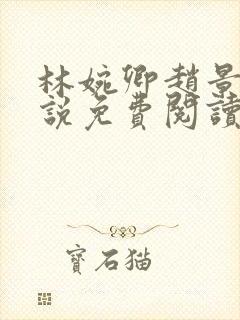 林婉卿趙景
說免費閱讀
寶石猫